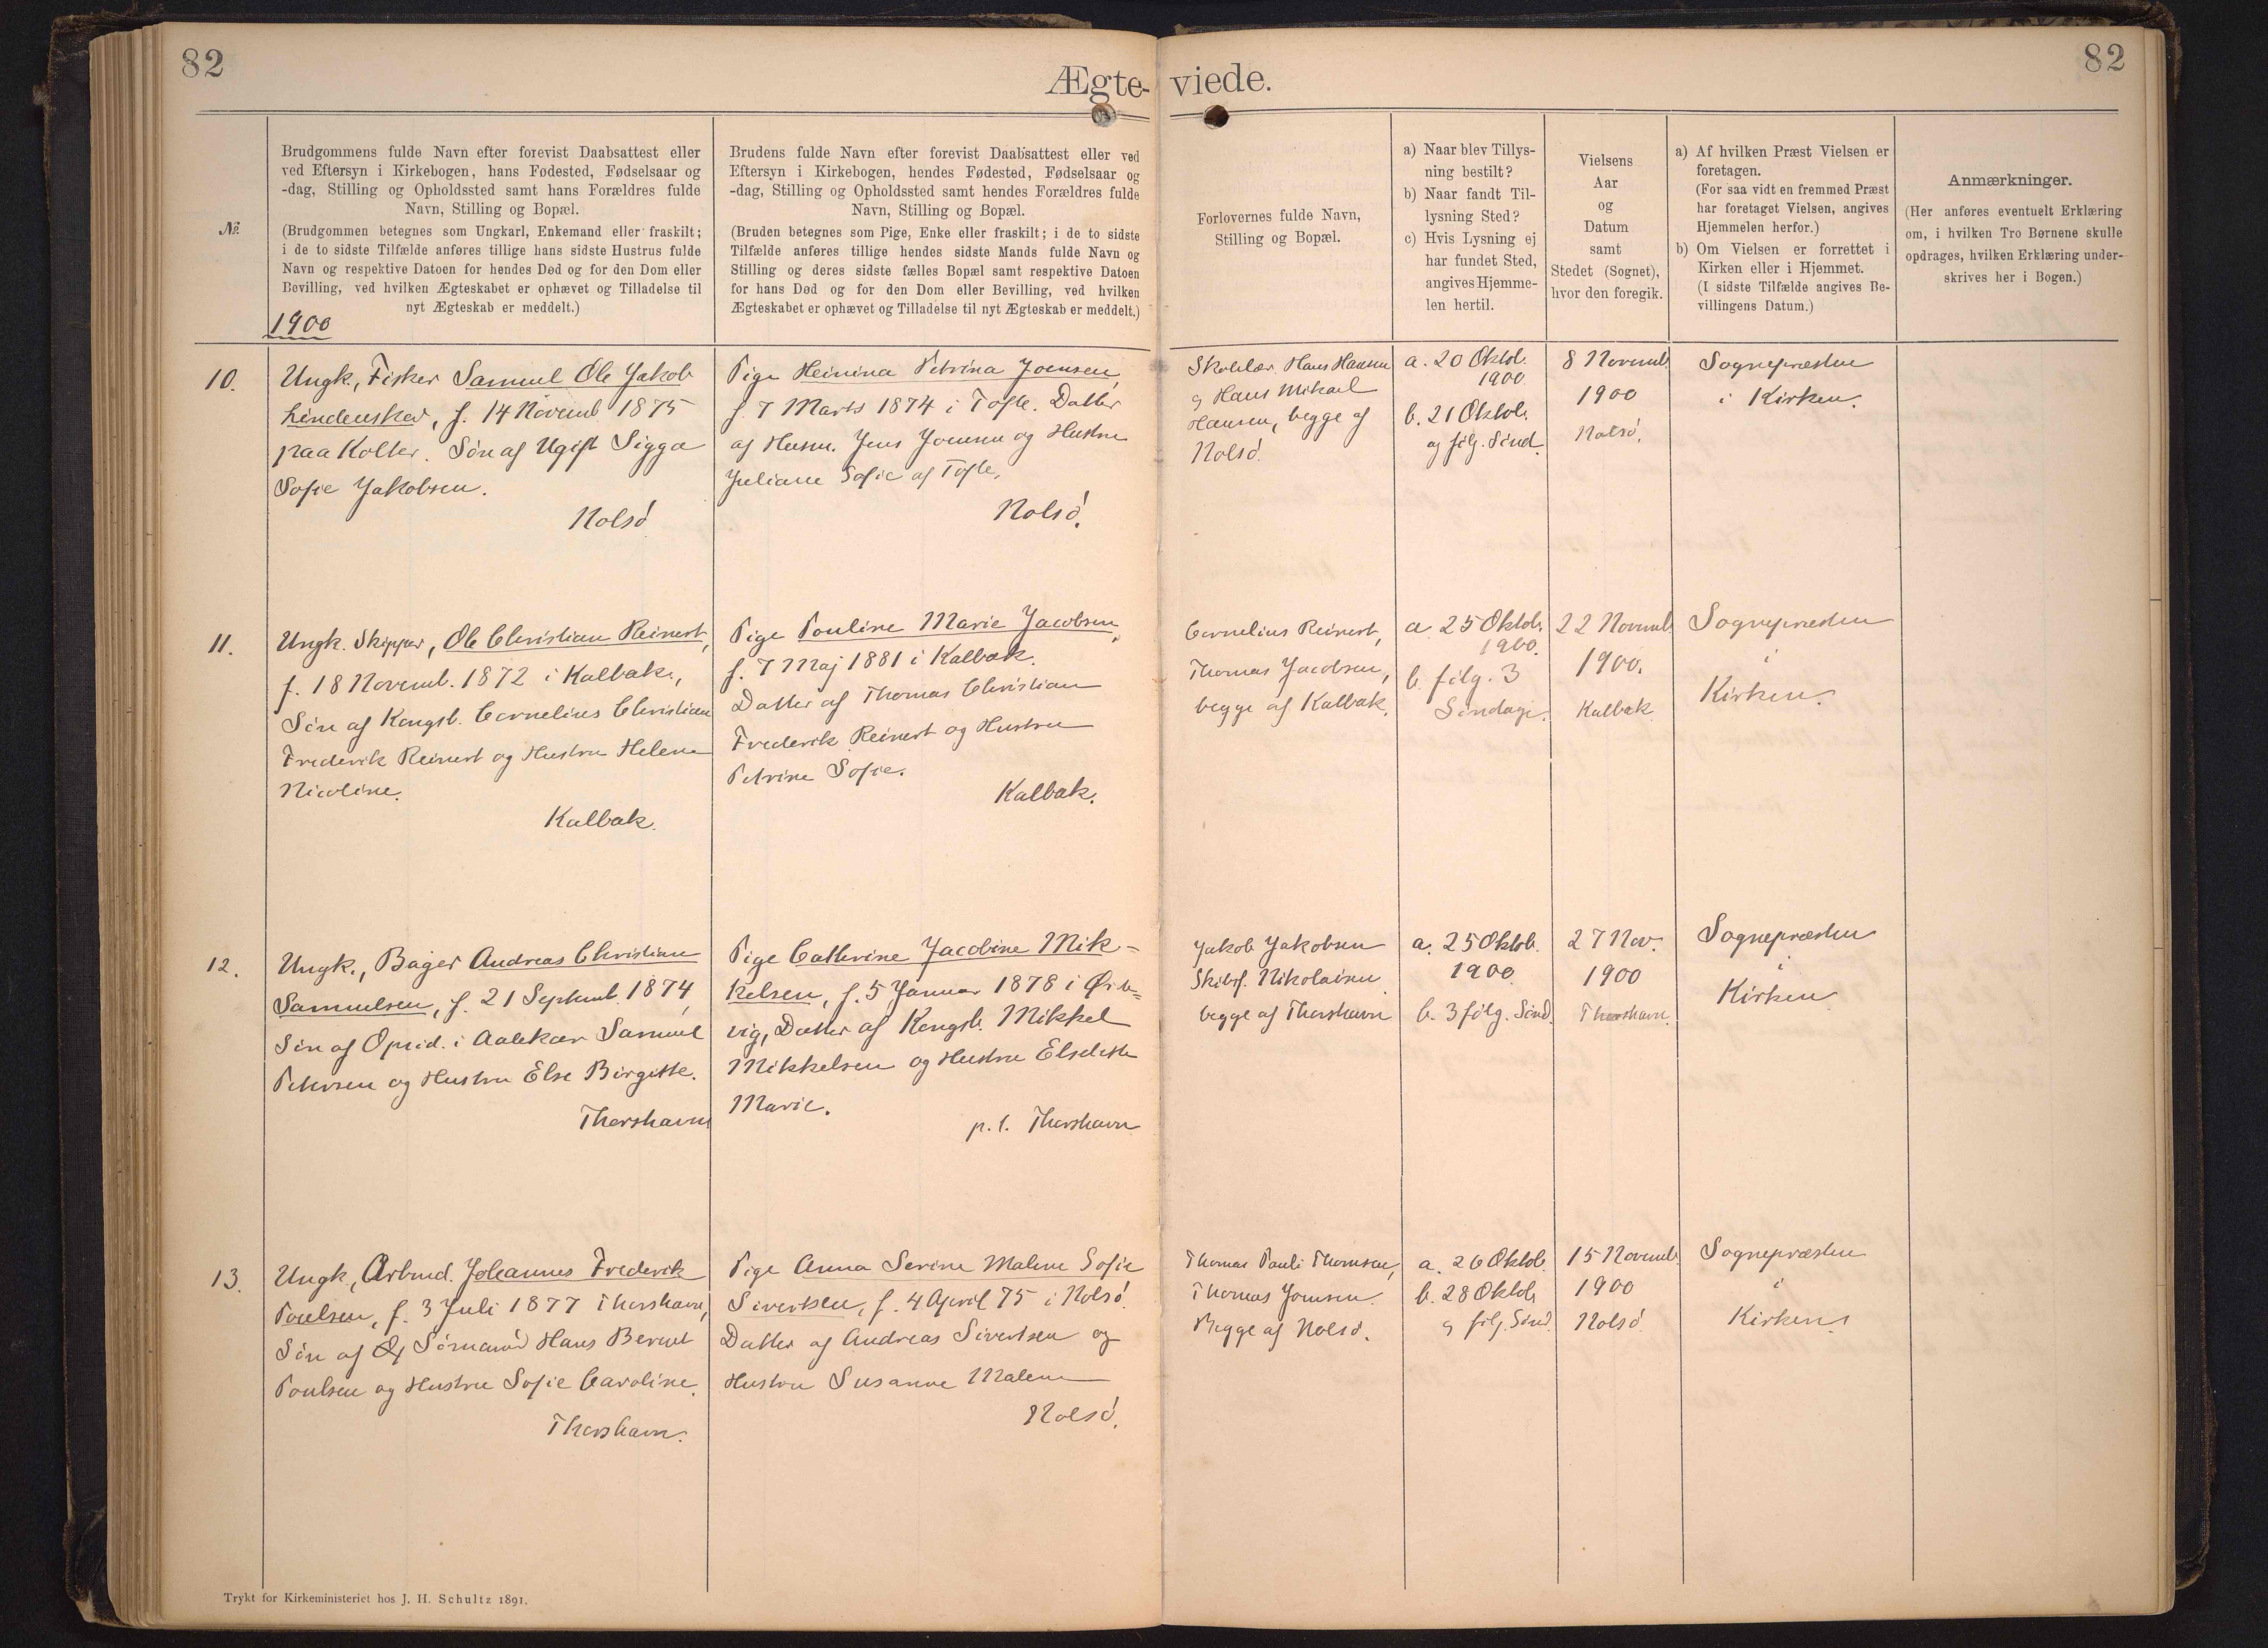 82
82
Ægte-viede.
№
Brudgommens fulde Navn efter forevist Daabsattest eller
ved Eftersyn i Kirkebogen, hans Fødested, Fødselsaar og
-dag, Stilling og Opholdssted samt hans Forældres fulde
Navn, Stilling og Bopæl.
(Brudgommen betegnes som Ungkarl, Enkemand eller fraskilt;
i de to sidste Tilfælde anføres tillige hans sidste Hustrus fulde
Navn og respektive Datoen for hendes Død og for den Dom eller
Bevilling, ved hvilken Ægteskabet er ophævet og Tilladelse til
nyt Ægteskab er meddelt.)
Brudens fulde Navn efter forevist Daabsattest eller ved
Eftersyn i Kirkebogen, hendes Fødested, Fødselsaar og
-dag, Stilling og Opholdssted samt hendes Forældres fulde
Navn, Stilling og Bopæl.
(Bruden betegnes som Pige, Enke eller fraskilt; i de to sidste
Tilfælde anføres tillige hendes sidste Mands fulde Navn og
Stilling og deres sidste fælles Bopæl samt respektive Datoen
for hans Død og for den Dom eller Bevilling, ved hvilken
Ægteskabet er ophævet og Tilladelse til nyt Ægteskab er meddelt.)
Forlovernes fulde Navn,
Stilling og Bopæl.
a) Naar blev Tillys-
ning bestilt?
b) Naar fandt Til-
lysning Sted?
c) Hvis Lysning ej
har fundet Sted,
angives Hjemme-
len hertil.
Vielsens
Aar
og
Datum
samt
Stedet (Sognet),
hvor den foregik.
a) Af hvilken Præst Vielsen er
foretagen.
(For saa vidt en fremmed Præst
har foretaget Vielsen, angives
Hjemmelen herfor.)
b) Om Vielsen er forrettet i
Kirken eller i Hjemmet.
(I sidste Tilfælde angives Be-
villingens Datum.)
Anmærkninger.
(Her anføres eventuelt Erklæring
om, i hvilken Tro Børnene skulle
opdrages, hvilken Erklæring under-
skrives her i Bogen.)
1900
10.
Ungk, Fisker Samuel Ole Jakob
Lindenskov, f. 14 Novemb 1875
paa Kolter. Søn af Ugift Sigga
Sofie Jakobsen.
Nolsø
Pige Heinina Petrina Joensen,
f. 7 Marts 1874 i Tofte. Datter
af Husm. Jens Joensen og Hustru
Juliane Sofie af Tofte.
Nolsø.
Skolelær. Hans Hansen
og Hans Mikael
Hansen, begge af
Nolsø.
a. 20 Oktob.
1900.
b. 21 Oktob.
og følg. Sønd.
8 Novemb.
1900
Nolsø.
Sognepræsten
i Kirken.
11.
Ungk. Skipper, Ole Christian Reinert,
f. 18 Novemb. 1872 i Kalbak.,
Søn af Kongsb. Cornelius Christian
Frederik Reinert og Hustru Helene
Nicoline.
Kalbak.
Pige Pouline Marie Jacobsen,
f. 7 Maj 1881 i Kalbak.
Datter af Thomas Christian
Frederik Reinert og Hustru
Petrine Sofie.
Kalbak.
Cornelius Reinert,
Thomas Jacobsen,
begge af Kalbak.
a 25 Oktob.
1900.
b. følg. 3
Søndage.
22 Novemb.
1900.
Kalbak
Sognepræsten
i
Kirken.
12.
Ungk., Bager Andreas Christian
Samuelsen, f. 21 Septemb. 1874,
Søn af Opsid. i Aalekær Samuel
Petersen og Hustru Else Birgitte.
Thorshavn
Pige Cathrine Jacobine Mik=
kelsen, f. 5 Januar 1878 i Ørde=
vig, Datter af Kongsb. Mikkel
Mikkelsen og Hustru Elsebeth
Marie.
p. t. Thorshavn
Jakob Jakobsen
Skibsf. Nikolaisen
begge af Thorshavn
a. 25 Oktob.
1900.
b. 3 følg. Sønd.
27 Nov.
1900
Thorshavn.
Sognepræsten
i
Kirken
13.
Ungk, Arbmd. Johannes Frederik
Poulsen, f. 3 Juli 1877 Thorshavn,
Søn af Sømand Hans Berent
Poulsen og Hustru Sofie Caroline.
Thorshavn.
Pige Anna Serine Malene Sofie
Sivertsen, f. 4 April 75 i Nolsø.
Datter af Andreas Sivertsen og
Hustru Susanne Malene
Nolsø.
Thomas Pauli Thomsen,
Thomas Joensen.
Begge af Nolsø.
a. 26 Oktob.
b. 28 Oktob.
og følg. Sønd.
15 Novemb.
1900
Nolsø.
Sognepræsten
i
Kirken.
Trykt for Kirkeministeriet hos J. H. Schultz 1891.